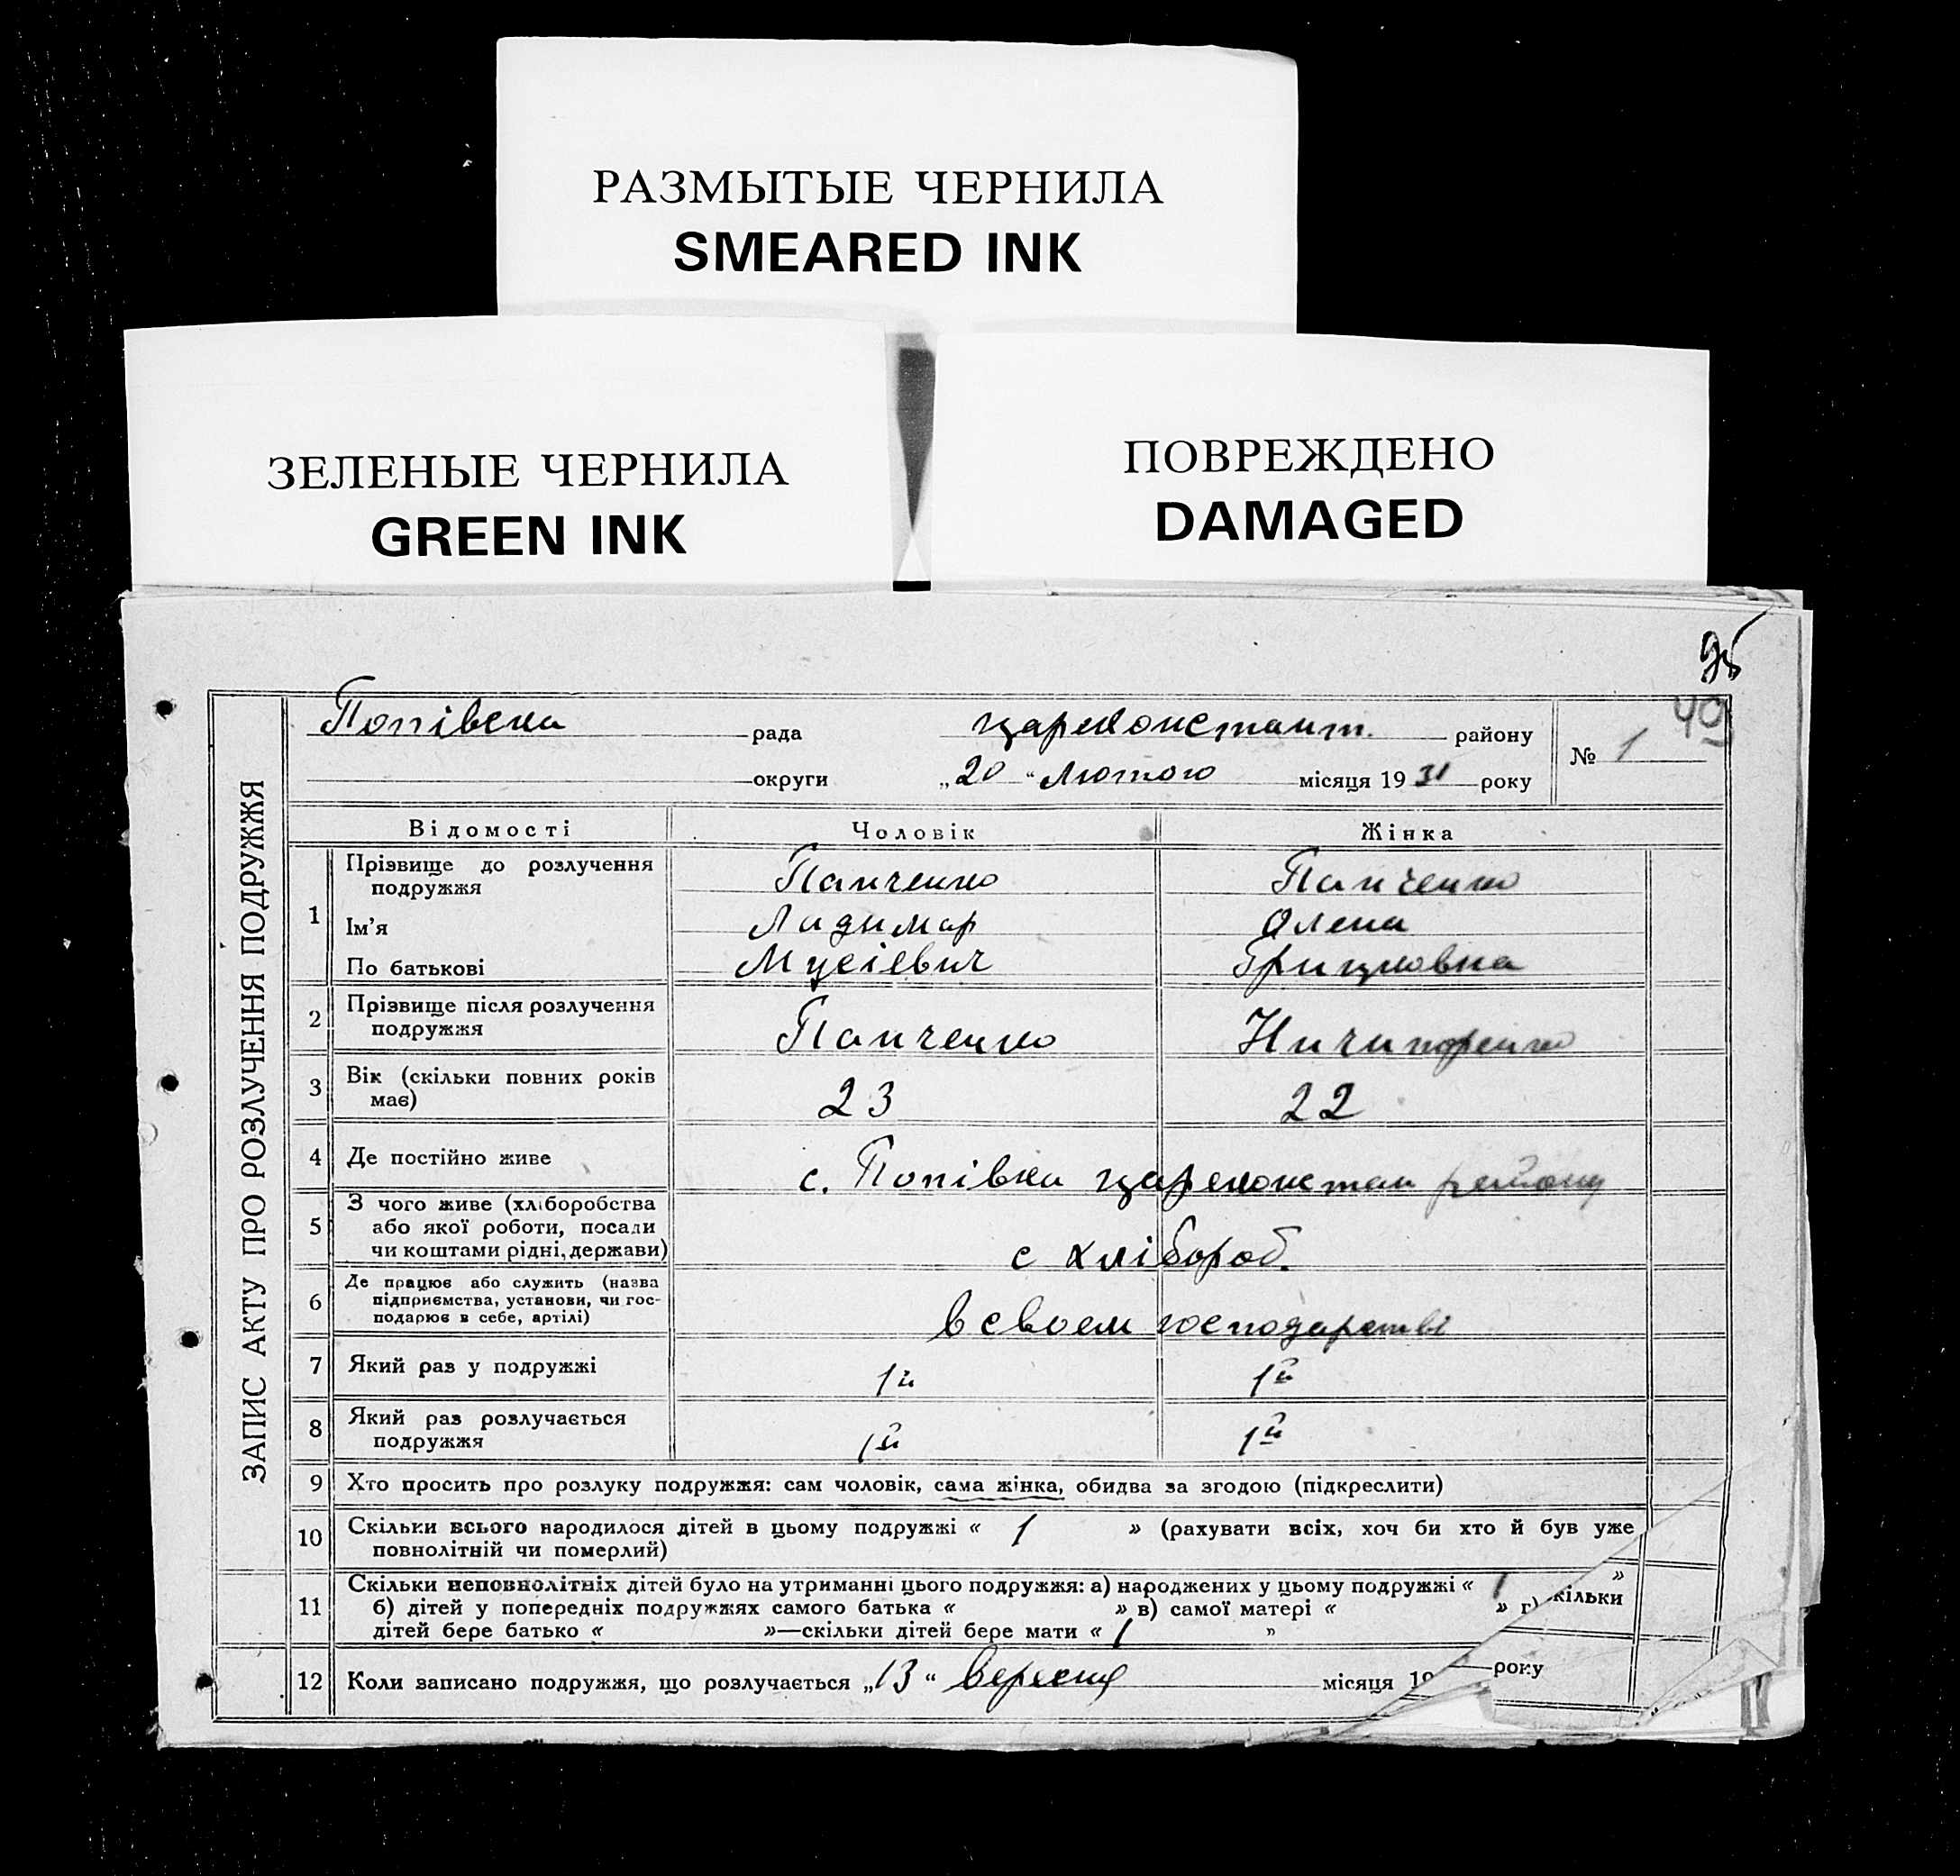 РАЗМЫТЫЕ ЧЕРНИЛА
SMEARED INK
ЗЕЛЕНЫЕ ЧЕРНИЛА
GREEN INK
ПОВРЕЖДЕНО
DAMAGED
95
40
ЗАПИС АКТУ ПРО РОЗЛУЧЕННЯ ПОДРУЖЖЯ
Попівска рада Цареконстант. району № 1
округи „20“ Лютого місяця 1931 року
Відомості Чоловік Жінка
1 Прізвище до розлучення подружжя Панченко Панченко
Ім'я Ладимар Олена
По батькові Мусієвич Грицковна
2 Прізвище після розлучення подружжя Панченко Ничипоренко
3 Вік (скільки повних років має) 23 22
4 Де постійно живе с. Попівка Цареконстан району
5 З чого живе (хліборобства або якої роботи, посади чи коштами рідні, держави) с хлібороб.
6 Де працює або служить (назва підприємства, установи, чи господарює в себе, артілі) в своем господарстві
7 Який раз у подружжі 1й 1й
8 Який раз розлучається подружжя 1й 1й
9 Хто просить про розлуку подружжя: сам чоловік, сама жінка, обидва за згодою (підкреслити)
10 Скільки всього народилося дітей в цьому подружжі « 1 » (рахувати всіх, хоч би хто й був уже
повнолітній чи померлий)
11 Скільки неповнолітніх дітей було на утриманні цього подружжя: а) народжених у цьому подружжі « 1 »
б) дітей у попередніх подружжях самого батька « » в) самої матері « » г) скільки
дітей бере батько « »—скільки дітей бере мати « 1 »
12 Коли записано подружжя, що розлучається „13“ вересня місяця 19 року